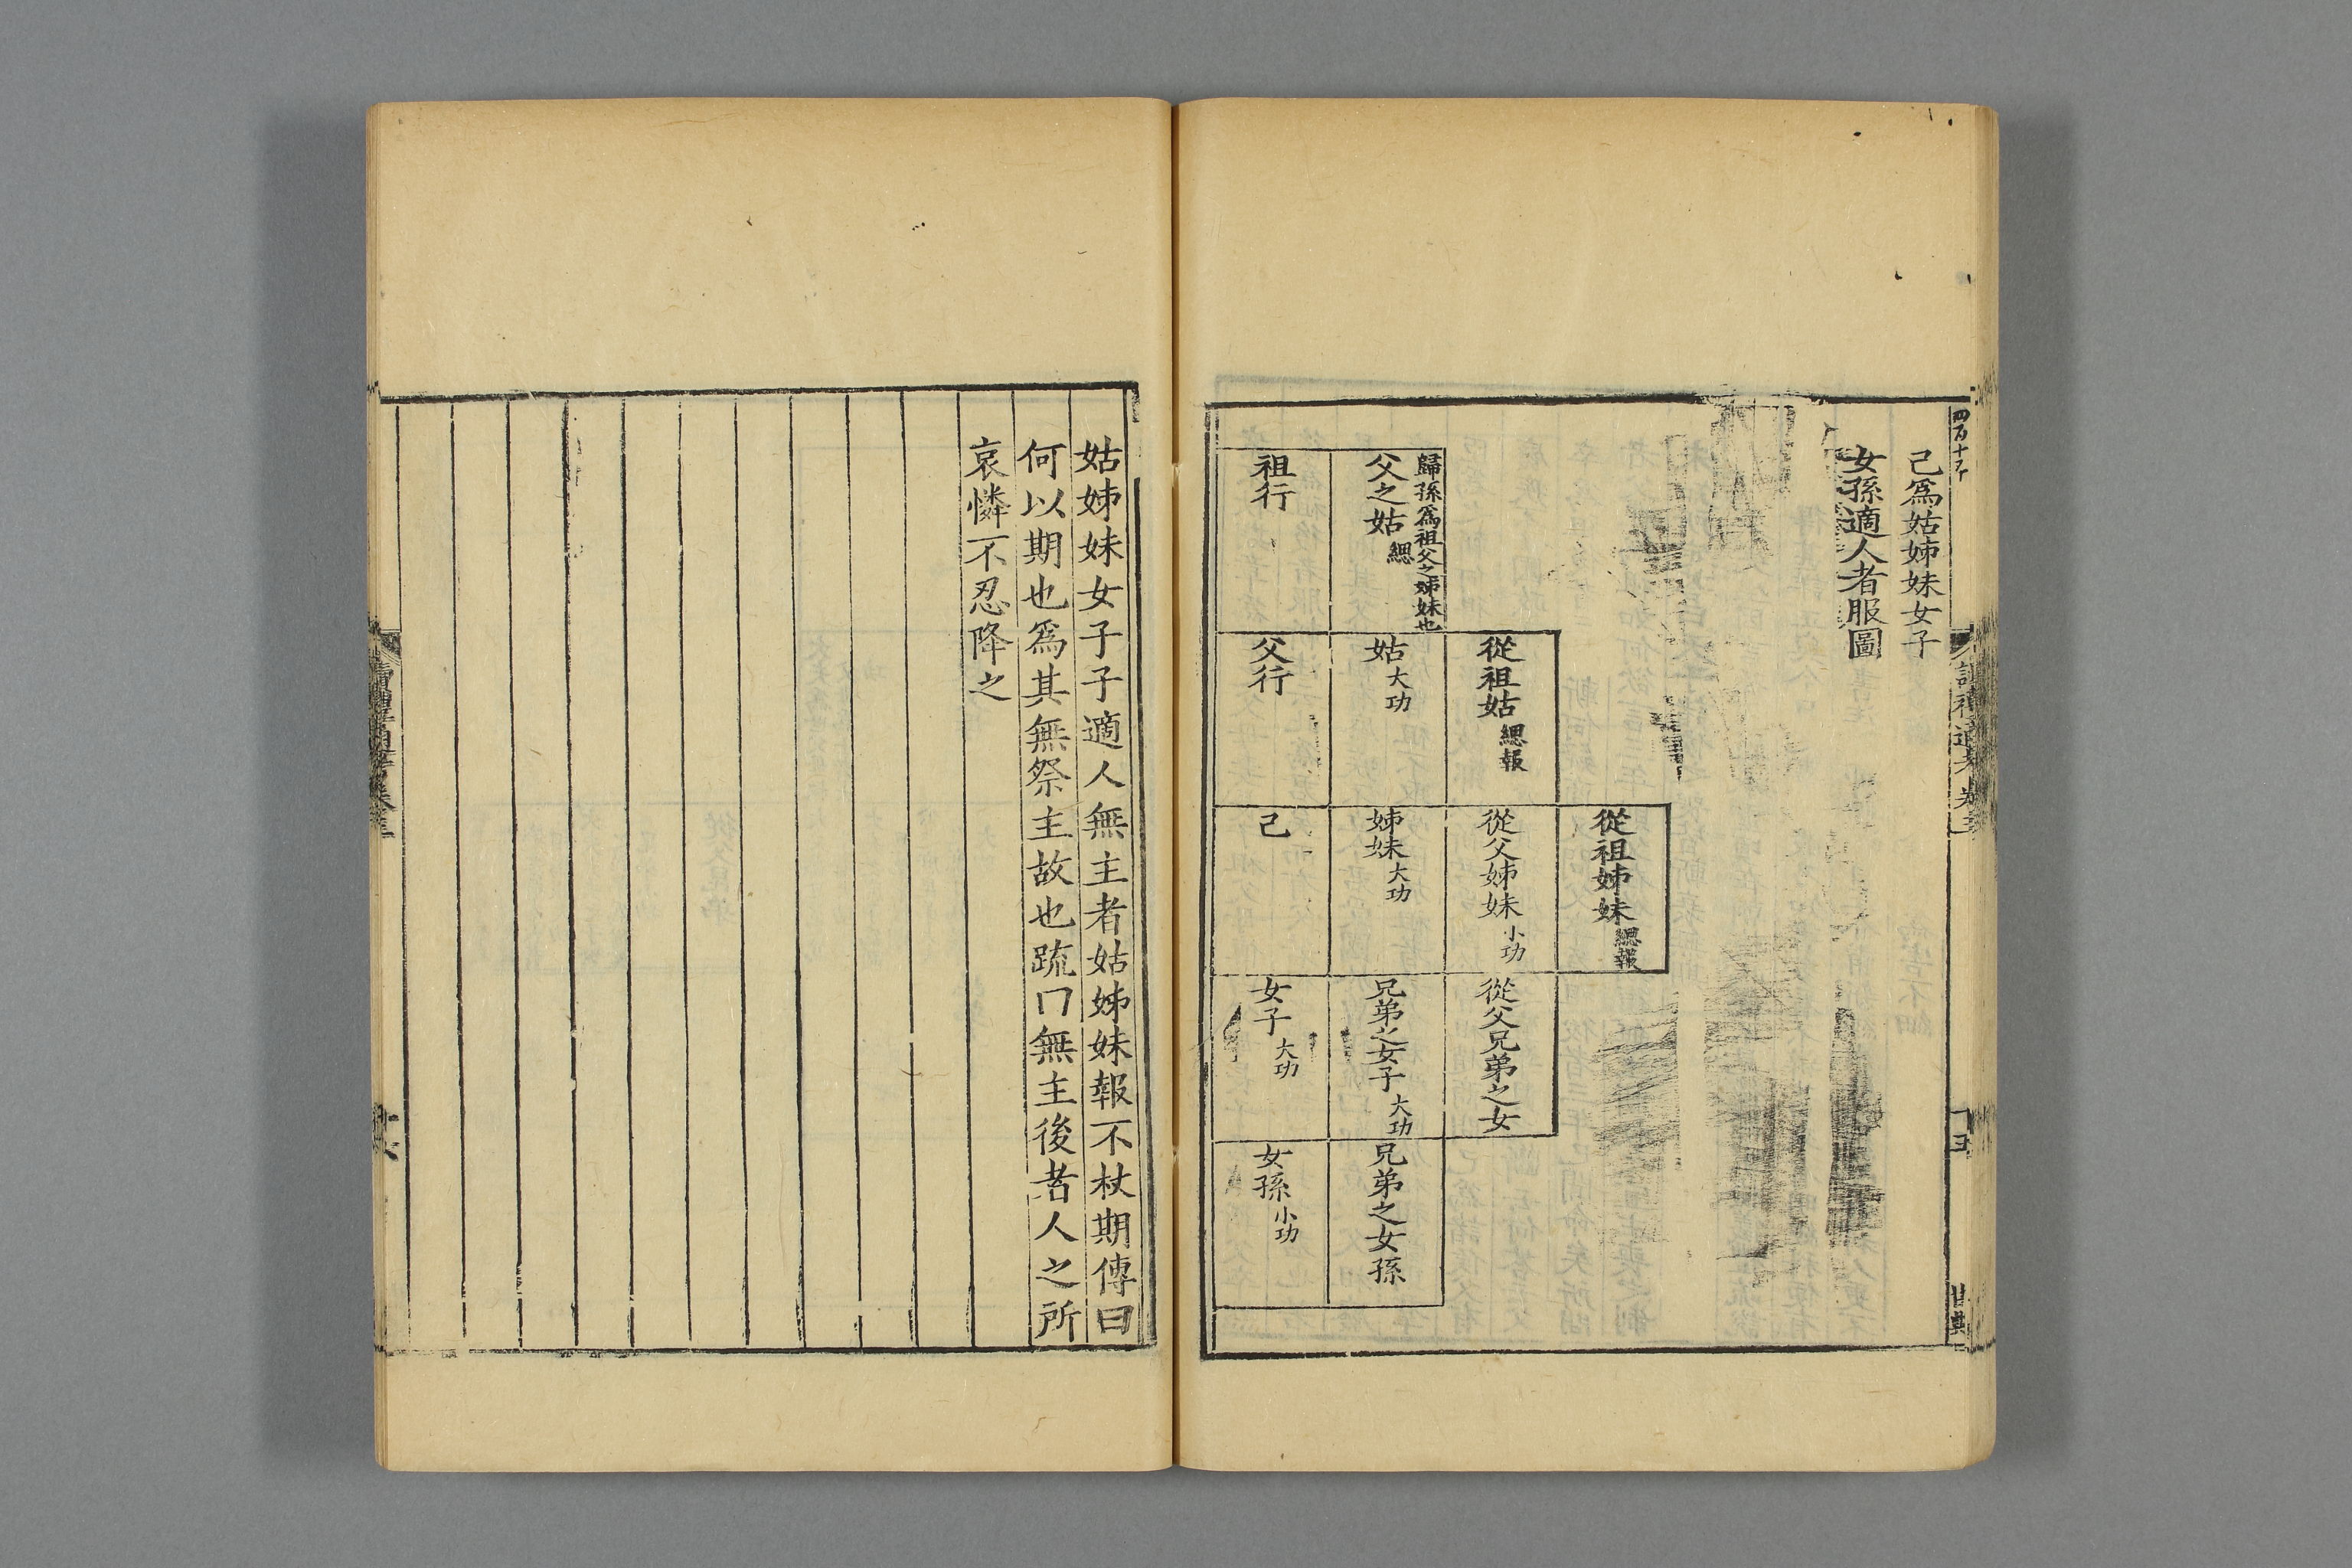 己爲姑姊妹女子
女孫適人者服圖
從祖姊妹 緦報
從祖姑 緦報
從父姊妹 小功
從父兄弟之女
歸孫爲祖父之姊妹也
父之姑 緦
姑 大功
姊妹 大功
兄弟之女子 大功
兄弟之女孫
祖行
父行
己
女子 大功
女孫 小功
姑姊妹女子子適人無主者姑姊妹報不杖期傳曰
何以期也爲其無祭主故也疏曰無主後者人之所
哀憐不忍降之